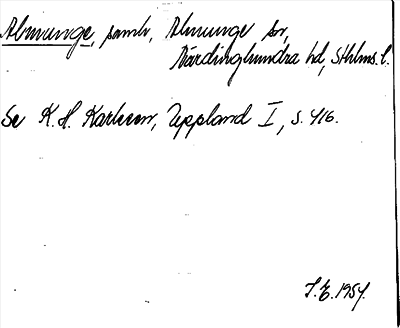 Almunge, samh, Almunge sn,
Närdinghundra hd, Sthlms. l.
Se K. H. Karlsson, Uppland I, s. 416.
J. E. 1954.